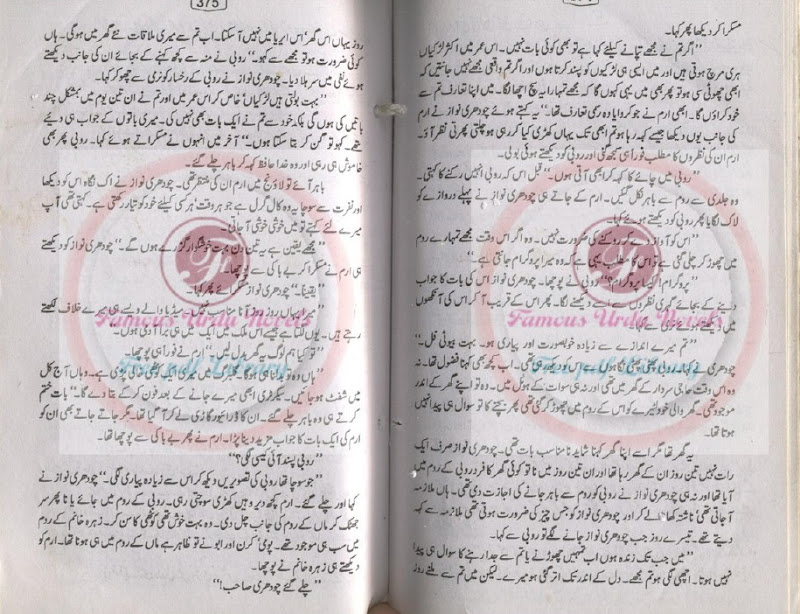 374
مسکرا کر دیکھا پھر کہا۔
"اگر تم نے مجھے تپانے کیلئے کہا ہے تو بھی کوئی بات نہیں۔ اس عمر میں اکثر لڑکیاں
ہری مرچ ہوتی ہیں اور میں ایسی ہی لڑکیوں کو پسند کرتا ہوں اور اگر تم واقعی مجھے نہیں جانتیں کہ
ابھی چھوٹی سی ہو تو پھر بھی میں یہی کہوں گا کہ مجھے تمہارا یہ سچ اچھا لگا۔ میں اپنا تعارف تم سے
خود کراؤں گا۔ ابھی ارم نے جو کروایا وہ رسمی تعارف تھا۔" یہ کہتے ہوئے چودھری نواز نے ارم
کی جانب یوں دیکھا جیسے کہہ رہا ہو تم ابھی تک یہاں کھڑی کیا کر رہی ہو چلتی پھرتی نظر آؤ۔
ارم ان کی نظروں کا مطلب فوراً ہی سمجھ گئی اور روبی کو دیکھتے ہوئے بولی۔
"روبی میں چائے کا کہہ کر ابھی آتی ہوں۔" قبل اس کہ روبی انہیں رکنے کا کہتی۔
وہ جلدی سے روم سے باہر نکل گئیں۔ ارم کے جاتے ہی چودھری نواز نے پہلے دروازے کو
لاک لگایا پھر روبی کو دیکھتے ہوئے کہا۔
"اس کو آواز دے کر روکنے کی ضرورت نہیں۔ وہ اگر اس وقت مجھے تمہارے روم
میں چھوڑ کر چلی گئی ہے تو اس کا مطلب یہی ہے کہ وہ میرا پروگرام جانتی ہے۔"
"پروگرام! کیسا پروگرام؟" روبی نے پوچھا۔ چودھری نواز نے اس کی بات کا جواب
دینے کے بجائے گہری نظروں سے اسے دیکھنے لگا۔ پھر اس کے قریب آ کر اس کی آنکھوں
میں دیکھتے ہوئے کہا۔
"تم میرے اندازے سے زیادہ خوبصورت اور پیاری ہو۔ بہت بیوٹی فل۔"
چودھری نے کہا۔ روبی
وہ اس وقت حاجی سردار کے گھر میں تھی اور نہ ہی سوات کے ہوٹل میں۔ وہ تو اپنے گھر کے اندر
موجود تھی۔ گھر والی خود لٹیرے کو اس کے روم میں چھوڑ کر گئی تھی پھر بچنے کا تو سوال ہی پیدا نہیں
ہوتا تھا۔
یہ گھر تھا مگر اسے اپنا گھر کہنا شاید نامناسب بات تھی۔ چودھری نواز صرف ایک
رات نہیں تین روز ان کے گھر رہا تھا اور ان تین روز میں نا تو کوئی گھر کا فرد روبی کے روم میں
آیا تھا اور نہ ہی چودھری نواز نے روبی کو روم سے باہر جانے کی اجازت دی تھی۔ ہاں ملازمہ
آ جاتی تھی ناشتہ کھانا لے کر اور چودھری نواز کو جس چیز کی ضرورت ہوتی تھی ملازمہ سے کہہ
دیتے تھے۔ تیسرے روز جب چودھری نواز جانے لگے تو روبی سے کہا۔
"میں جب تک زندہ ہوں اب تمہیں چھوڑنے یا تم سے جدا رہنے کا سوال ہی پیدا
نہیں ہوتا۔ اچھی لگی ہو تم مجھے۔ دل کے اندر تک اتر گئی ہو میرے۔ لیکن میں تم سے ملنے روز
375
روز یہاں اس گھر، اس ایریا میں نہیں آ سکتا۔ اب تم سے میری ملاقات نئے گھر میں ہوگی۔ ہاں
کوئی ضرورت ہو تو مجھے سے کہو۔" روبی نے منہ سے کچھ کہنے کے بجائے ان کی جانب دیکھتے
ہوئے نفی میں سر ہلا دیا۔ چودھری نواز نے روبی کے رخسار کو نرمی سے چھو کر کہا۔
"بہت بولتی ہیں لڑکیاں، خاص کر اس عمر میں اور تم نے ان تین یوم میں بمشکل چند
باتیں کی ہوں گی بلکہ خود سے تم نے ایک بات بھی نہیں کی۔ میری باتوں کے جواب ہی دیے
تھے۔ کہو تو گن کر بتا سکتا ہوں۔" آخر میں انہوں نے مسکراتے ہوئے کہا۔ روبی پھر بھی
خاموش ہی رہی اور وہ خدا حافظ کہہ کر باہر چلے گئے۔
باہر آئے تو لاؤنج میں ارم ان کی منتظر تھی۔ چودھری نواز نے اک نگاہ اس کو دیکھا
اور نفرت سے سوچا یہ وہ کال گرل ہے جو ہر وقت ہر کسی کیلئے خود کو تیار رکھتی ہے۔ کہتی تھی آپ
میرے لئے کہتے تو میں خوشی خوشی آ جاتی۔
"مجھے یقین ہے یہ تین دن بہت خوشگوار گزرے ہوں گے۔" چودھری نواز کو دیکھتے
ہی ارم نے مسکرا کر بے باکی سے پوچھا۔
"یقیناً" چودھری نواز مسکراتے ہوئے کہا۔
"میرا یہاں روز روز آنا مناسب نہیں، میڈیا والے ویسے ہی میرے خلاف لکھتے
رہتے ہیں۔ یوں لگتا ہے جیسے اس ملک میں ایک میں ہی برا آدمی ہوں۔"
"تو کیا ہم لوگ یہ گھر بدل لیں۔" ارم نے فوراً ہی پوچھا۔
"ہاں وہ تو بدلنا ہی ہوگا۔ گلبرگ میں میری ایک کوٹھی خالی پڑی ہے۔ وہاں آج کل
میں شفٹ ہو جائیں۔ سیکرٹری ابھی میرے جانے کے بعد فون کر کے بتا دے گا۔" بات ختم
کرتے ہی وہ باہر چلے گئے۔ ان کا ڈرائیور گاڑی لے کر آ گیا تھا۔ مگر جاتے جاتے بھی ان کو
ارم کی ایک بات کا جواب مزید دینا پڑا۔ ارم نے پھر بے باکی سے پوچھا تھا۔
"روبی پسند آئی کیسی لگی؟"
"جو سوچا تھا روبی کی تصویریں دیکھ کر اس سے زیادہ پیاری لگی۔" چودھری نواز نے
کہا اور چلے گئے۔ ارم کچھ دیر وہیں کھڑی سوچتی رہی۔ روبی کے روم میں جائے یا نا پھر سر
جھٹک کر ماں کے روم کی جانب چل دی۔ وہ بہت خوش تھی کوٹھی کا سن کر۔ زہرہ خانم کے روم
میں سب ہی موجود تھے۔ پومی، کرن اور ابو نے تو ظاہر ہے ماں کے روم میں ہی ہونا تھا۔ ارم کو
دیکھتے ہی زہرہ خانم نے پوچھا۔
"چلے گئے چودھری صاحب!"
Famous Urdu Novels
Free pdf Library
Famous Urdu Novels
Free pdf Library